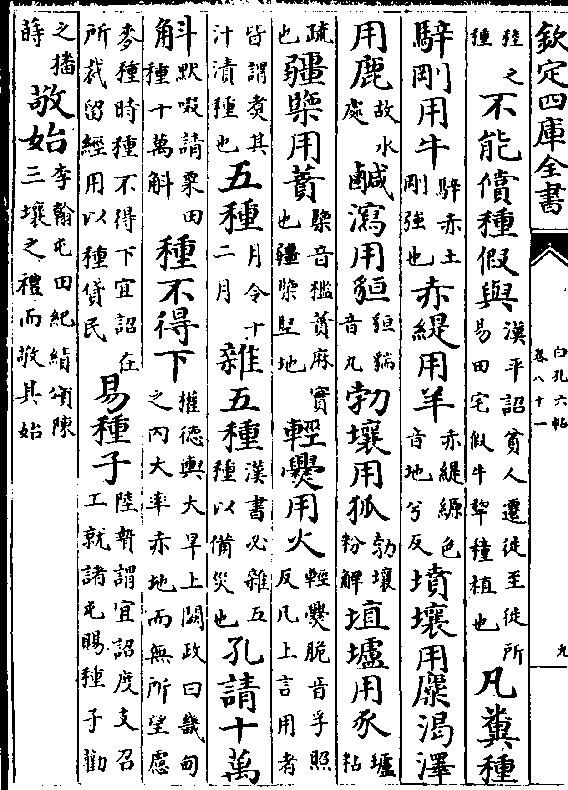 欽定四庫全書
白孔六帖
卷八十一
九
之種不能償種假與漢平詔貧人遷徙至徙所易田宅假牛犂種植也凡糞種
騂剛用牛騂赤土剛強也赤緹用羊赤緹縓色音地兮反墳壤用麋渴澤
用鹿故水處鹹瀉用貆貆猯音丸勃壤用狐勃壤粉解埴壚用豕壚粘
疏也彊㯺用蕡㯺音檻蕡麻實也彊㯺堅地輕爂用火輕爂脆音孚照反凡上言用者
皆謂煑其汁漬種也五種月令十二月雜五種漢書必雜五種以備災也孔請十萬
斗默啜請粟田角種十萬斛種不得下權德輿大旱上闕政曰畿甸之内大率赤地而無所望慮
麥種時種不得下宜詔在所裁留經用以種貸民易種子陸贄謂宜詔度支召工就諸屯賜種子勸
之播蒔敬始李翰屯田紀績頌陳三壤之禮而敬其始